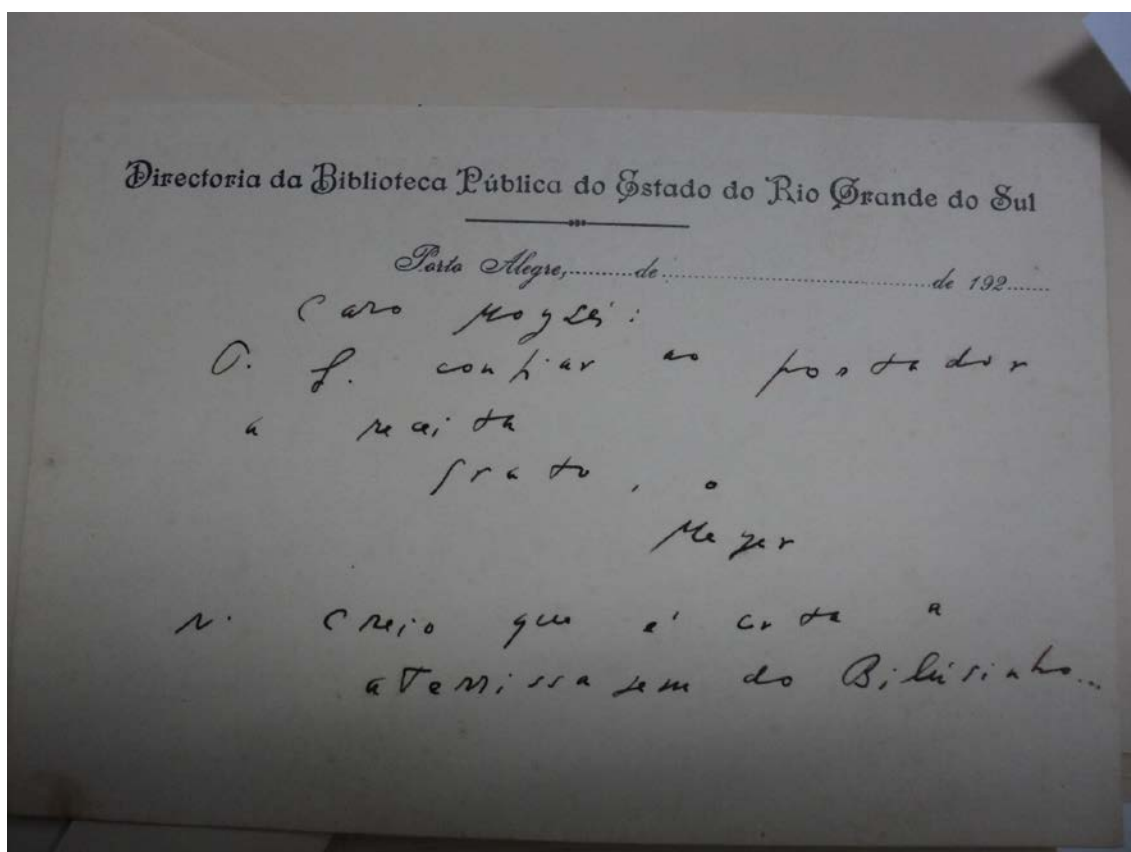 Directoria da Biblioteca Pública do Estado do Rio Grande do Sul
Porto Alegre,.........de.......................................de 192......
Caro Moysés:
P. f. confiar ao portador
a receita
grato, o
Meyer
N. Creio que é certa a
aterrissagem do Bilusinho...